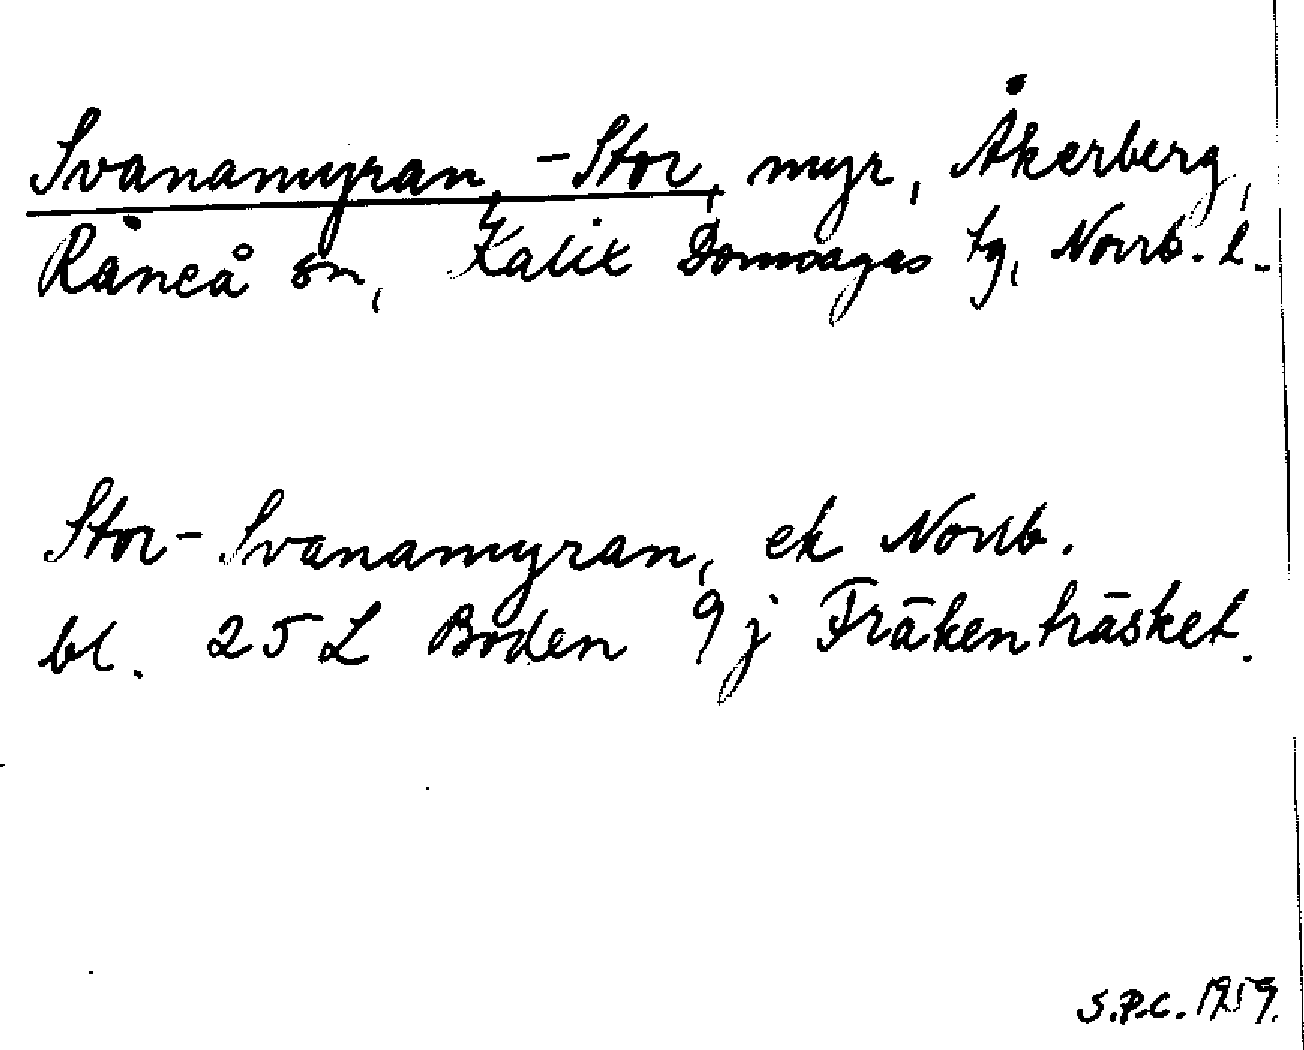 Svanamyran, -Stor, myr, Åkerberg,
Råneå sn, Kalix Domsagas tg, Norrb. l.
Stor-Svanamyran, ek Norrb.
bl. 25 L Boden 9 j Fräkenträsket.
S.P.C. 1959.